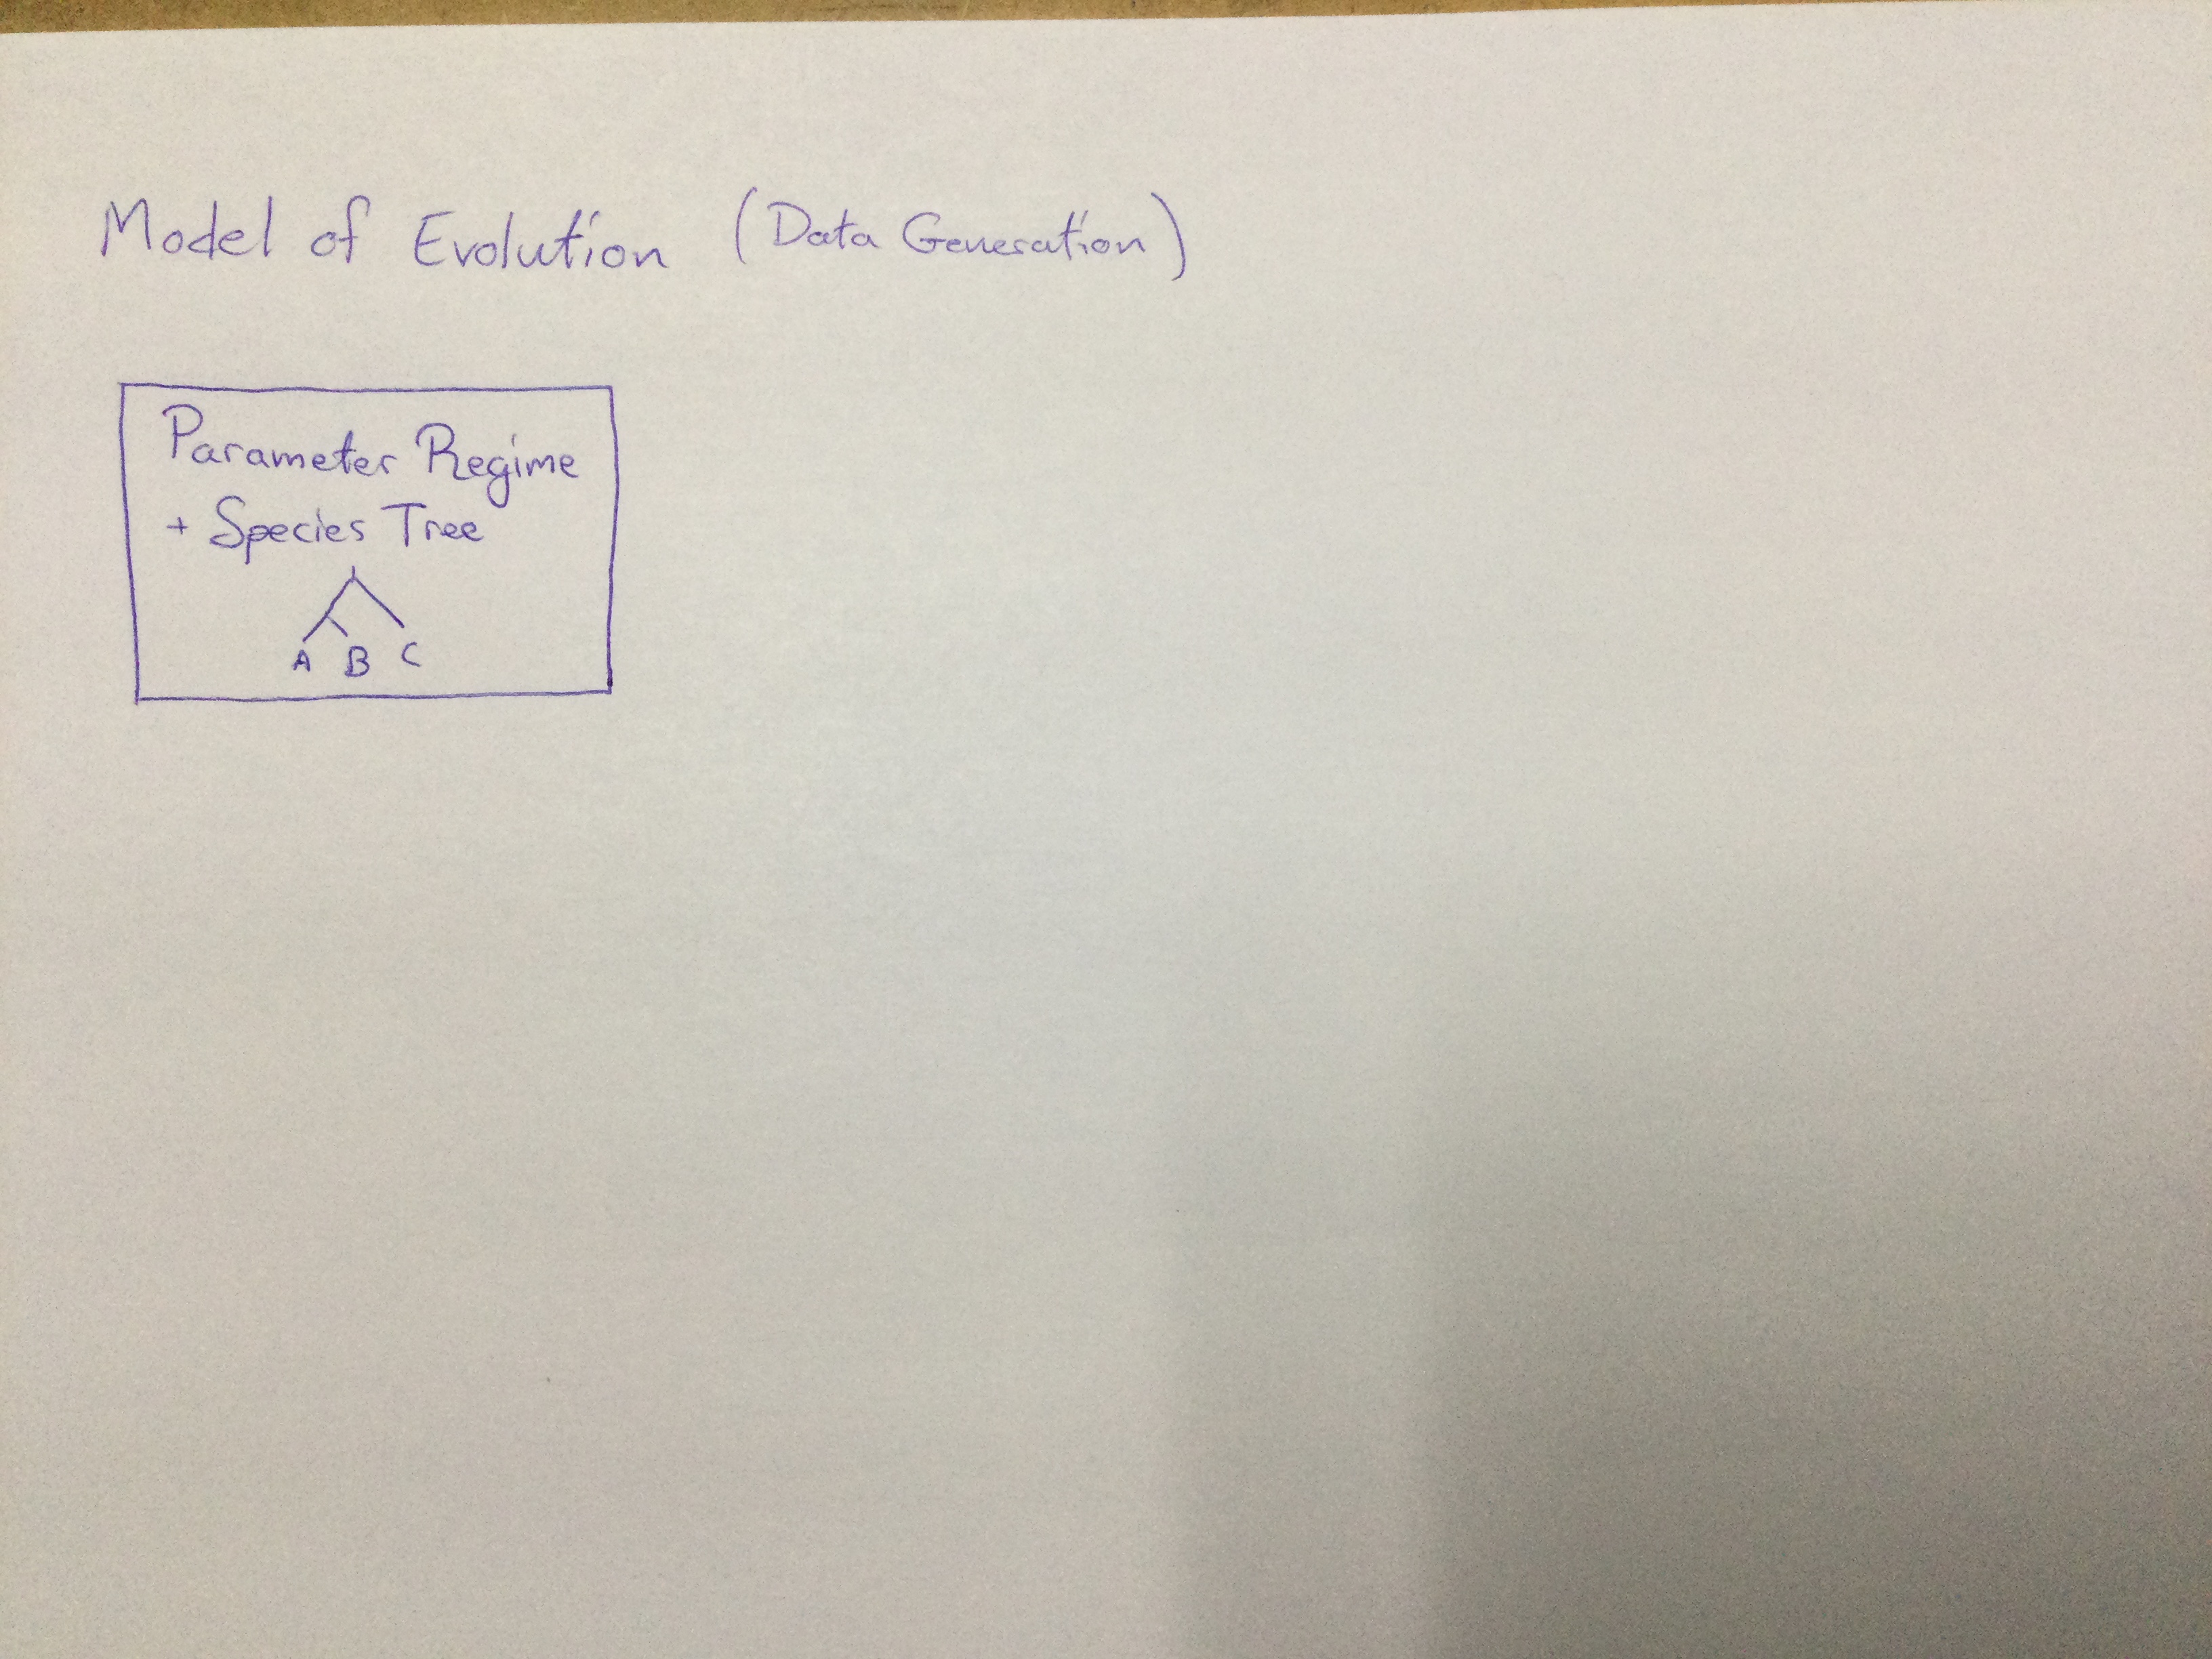 Model of Evolution (Data Generation)
Parameter Regime
+ Species Tree
A B C